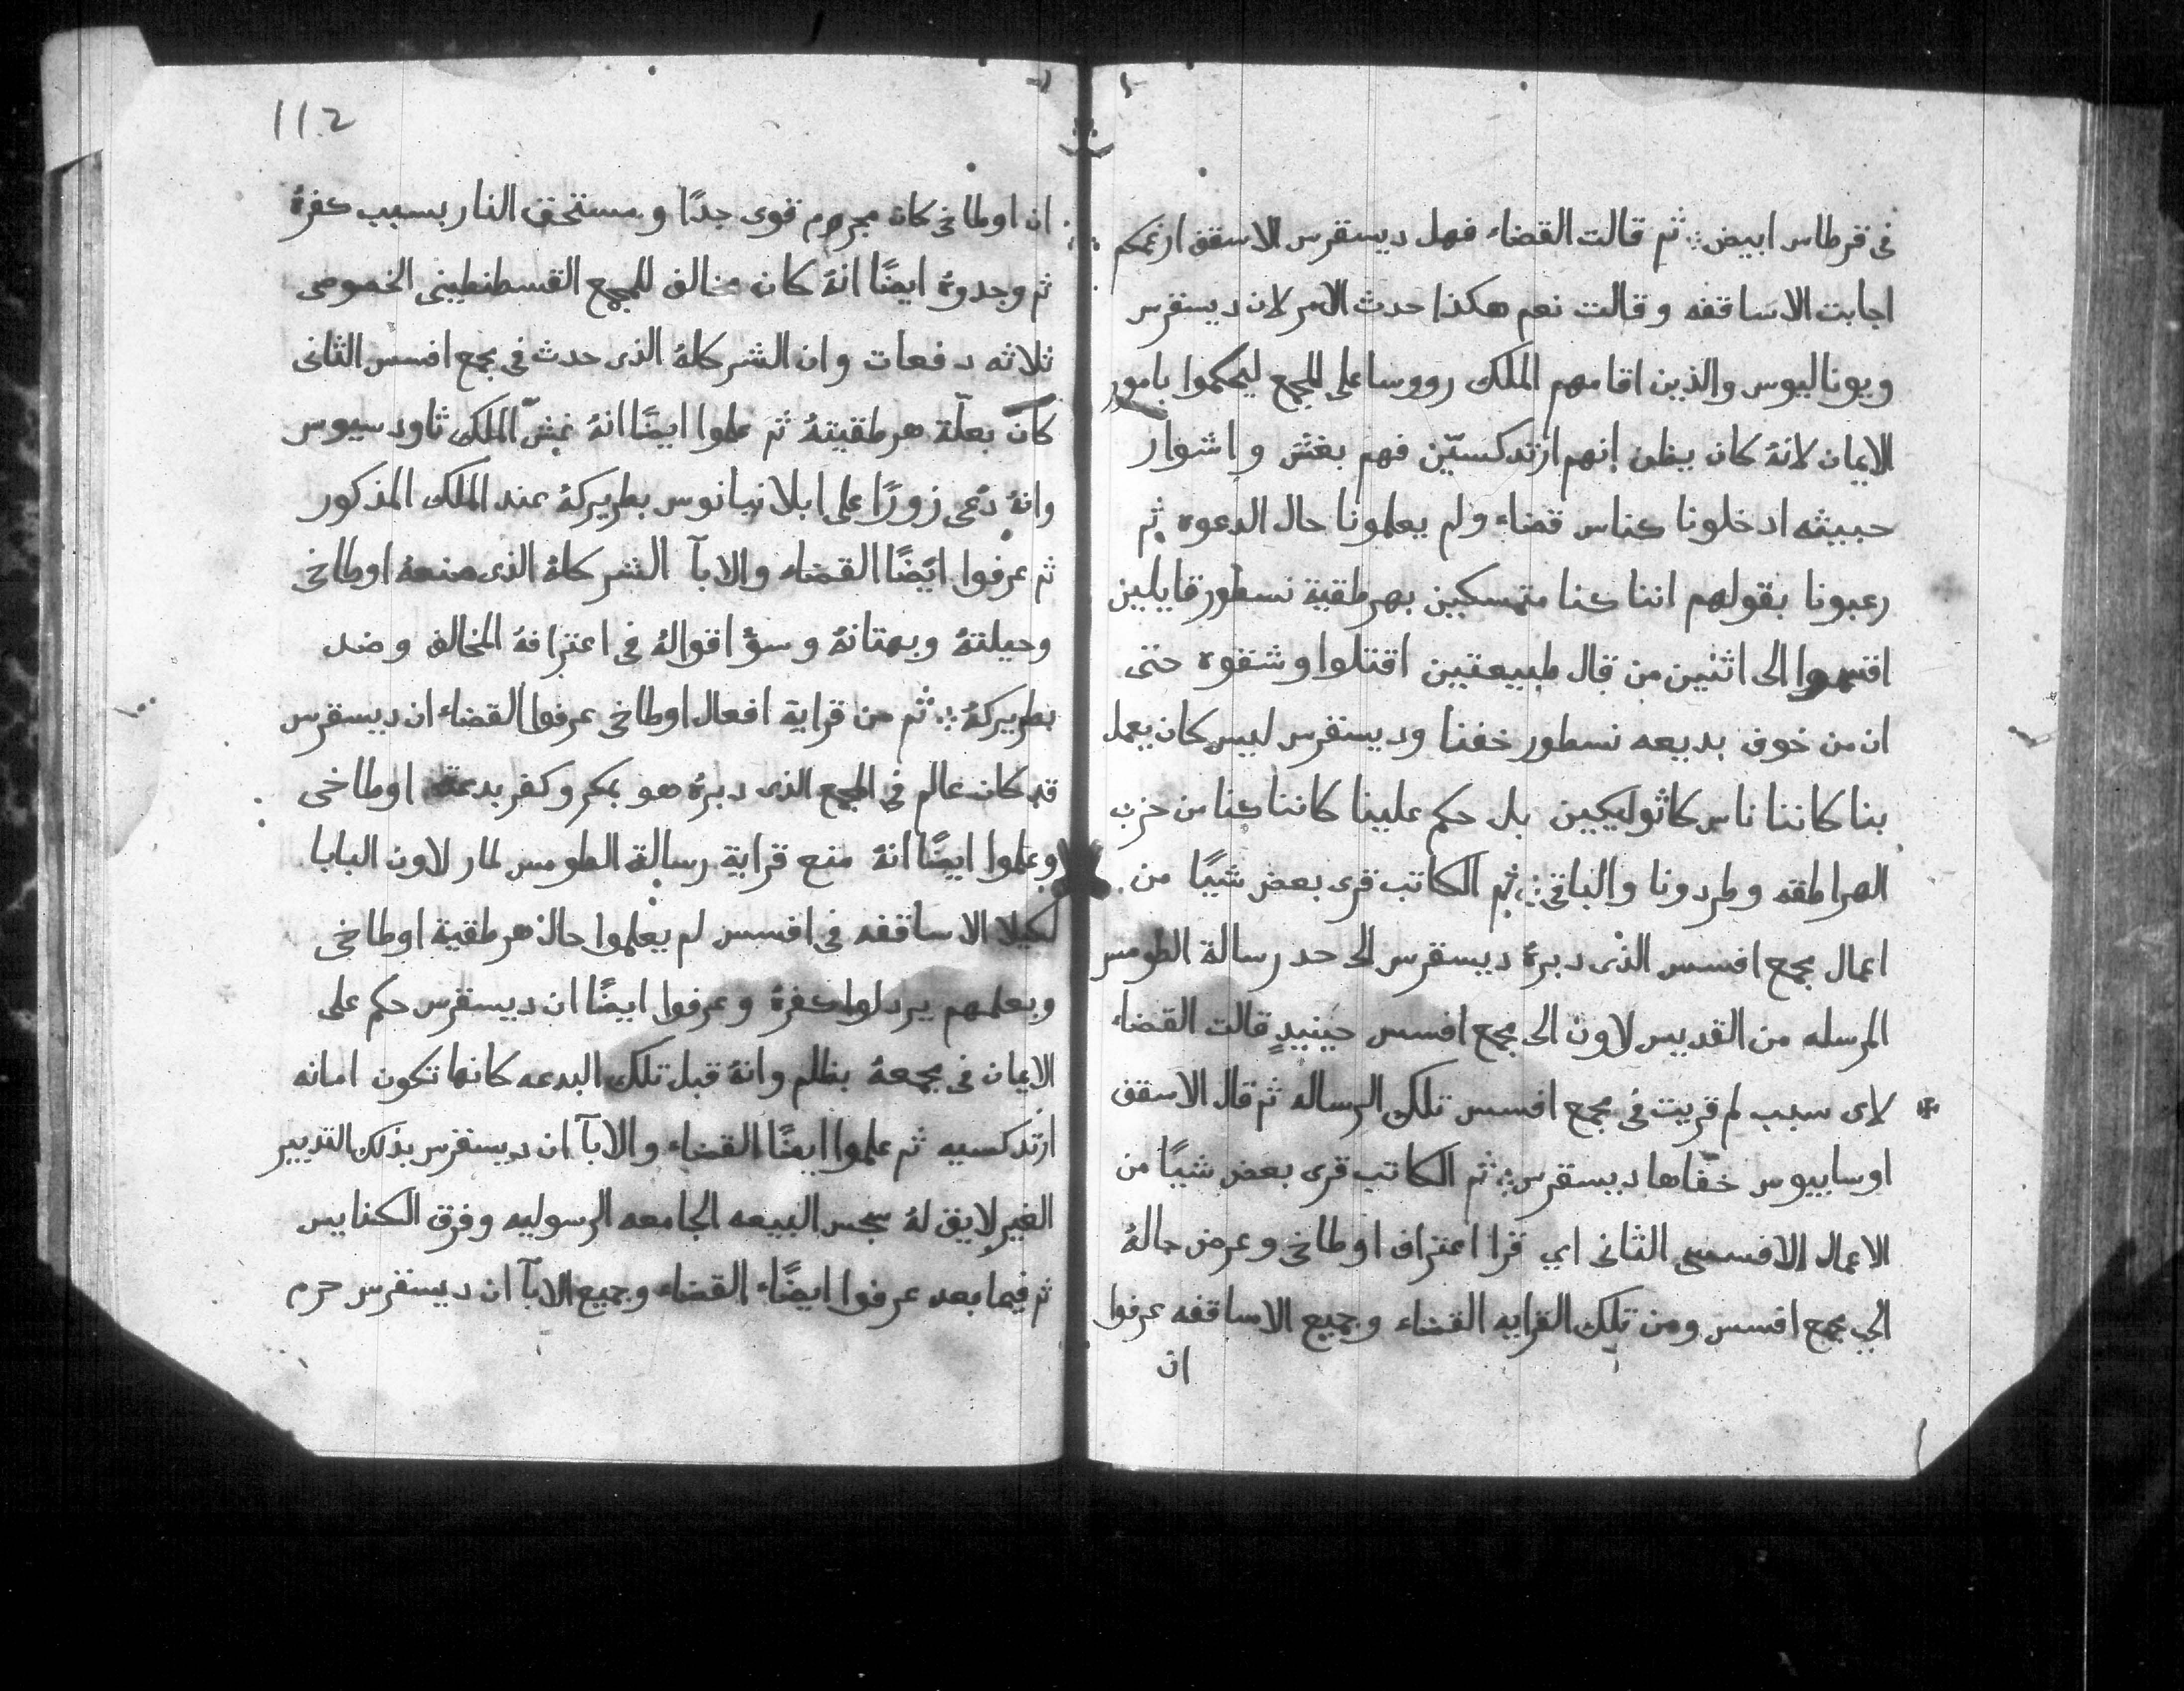 فى قرطاس ابيض ⁘ ثم قالت القضاء فهل ديسقرس الاسقف ارغمكم
اجابت الاساقفه وقالت نعم هكذا حدث الامر لان ديسقرس
ويوناليوس والذين اقامهم الملك رووسا على المجمع ليحكموا بامور
الايمان لانهُ كان يظن انهم ارتدكسيّن فهم بغش واشوار
خبيثه ادخلونا كناس قضاء ولم يعلمونا حال الدعوه ثم
رعبونا بقولهم اننا كنا متمسكين بهرطقية نسطور قايلين
اقسموا الى اثنين من قال طبيعتين اقتلوا وشقوه حتى
ان من خوف بديعه نسطور خفنا وديسقرس ليس كان يعمل
بنا كاننا ناس كاثوليكيين بل حكم علينا كاننا كنا من حزب
الهراطقه وطردونا والباقى ⁘ ثم الكاتب قرى بعض شيًا من
اعمال مجمع افسس الذى دبرهُ ديسقرس الى حد رسالة الطومس
المرسله من القديس لاون الى مجمع افسس حينيدٍ قالت القضاء
لاى سبب لم قريت فى مجمع افسس تلك الرساله ثم قال الاسقف
اوسابيوس خفّاها ديسقرس ⁘ ثم الكاتب قرى بعض شيًا من
الاعمال الافسسى الثانى اي قرا اعتراف اوطاخى وعرض حالهُ
الي مجمع افسس ومن تلك القرايه القضاء وجميع الاساقفه عرفوا
ان
112
ان اوطاخى كان مجرم قوى جدًا ومستحق النار بسبب كفرهُ
ثم وجدوهُ ايضًا انهُ كان مخالف للمجمع القسطنطينى الخصوصى
ثلاثه دفعات وان الشر كلهُ الذى حدث فى مجمع افسس الثانى
كان بعلّة هرطقيتهُ ثم علموا ايضًا انهُ غشّ الملك ثاودسيوس
وانهُ دعى زورًا على ابلانيانوس بطريركهُ عند الملك المذكور
ثم عرفوا ايضًا القضاء والابآ الشر كلهُ الذى صنعهُ اوطاخى
وحيلتهُ وبهتانهُ وسؤ اقوالهُ فى اعترافهُ المخالف وضد
بطريركهُ ⁘ ثم من قراية افعال اوطاخى عرفوا القضاء ان ديسقرس
قد كان عالم فى المجمع الذى دبرهُ هو بمكر وكفر بدعة اوطاخى
وعلموا ايضًا انهُ منع قراية رسالة الطومس لمار لاون البابا
لكيلا الاساقفه فى افسس لم يعلموا حال هرطقية اوطاخى
وبعلمهم يردلوا كفرهُ وعرفوا ايضًا ان ديسقرس حكم على
الايمان فى مجمعهُ بظلم وانهُ قبل تلك البدعه كانها تكون امانه
ارتدكسيه ثم علموا ايضًا القضاء والابآ ان ديسقرس بذلك التدبير
الغير لايق لهُ سجس البيعه الجامعه الرسوليه وفرق الكنايس
ثم فيما بعد عرفوا ايضًا القضاء وجميع الابآ ان ديسقرس حرم